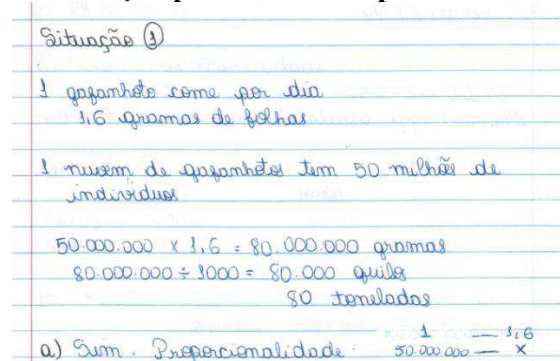 Situação 1
1 gafanhoto come por dia
1,6 gramas de folhas
1 nuvem de gafanhotos tem 50 milhões de
indivíduos
50.000.000 x 1,6 = 80.000.000 gramas
80.000.000 ÷ 1000 = 80.000 quilos
80 toneladas
1 — 1,6
a) Sim. Proporcionalidade. 50.000.000 — x